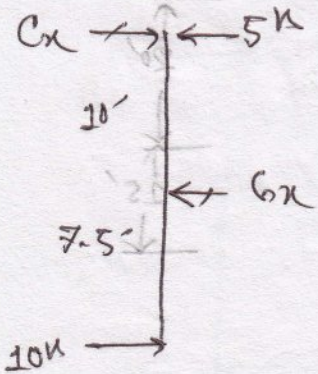 Cx 5ᵏ
10'
Gx
7.5'
10ᵏ